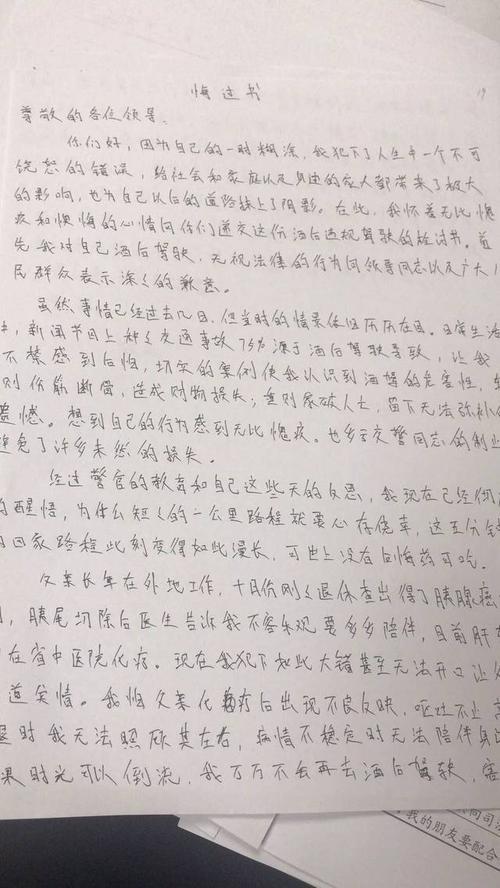 19
悔过书
尊敬的各位领导:
你们好,因为自己的一时糊涂,我犯下了人生中一个不可
饶恕的错误,给社会和家庭以及身边的家人都带来了极大
的影响,也为自己以后的道路抹上了阴影。在此,我怀着无比愧
疚和懊悔的心情向你们递交这份酒后违规驾驶的检讨书。首
先我对自己酒后驾驶,无视法律的行为向领导同志以及广大人
民群众表示深々的歉意。
虽然事情已经过去几日,但当时的情景依旧历历在目。日常生活
中,新闻节目上种々交通事故75%源于酒后驾驶导致,让我
不禁感到后怕,切实的案例使我认识到酒驾的危害性,轻
则伤筋断骨,造成财物损失;重则家破人亡,留下无法弥补的
遗憾。想到自己的行为感到无比愧疚。也多亏交警同志的制止
避免了许多未然的损失。
经过警官的教育和自己这些天的反思,我现在已经彻底
的醒悟,为什么短々的一公里路程就要心存侥幸,这五分钟
的回家路程此刻变得如此漫长,可世上没有后悔药可吃。
父亲长年在外地工作,十月份刚々退休查出得了胰腺癌
,胰尾切除后医生告诉我不容乐观要多多陪伴,目前肝
在省中医院化疗。现在我犯下如此大错甚至无法开口让父
道实情。我怕父亲化疗后出现不良反映,呕吐不止
时我无法照顾其左右,病情不稳定时无法陪伴身边
果时光可以倒流,我万万不会再去酒后驾驶,害
向司法
,我的朋友要配合